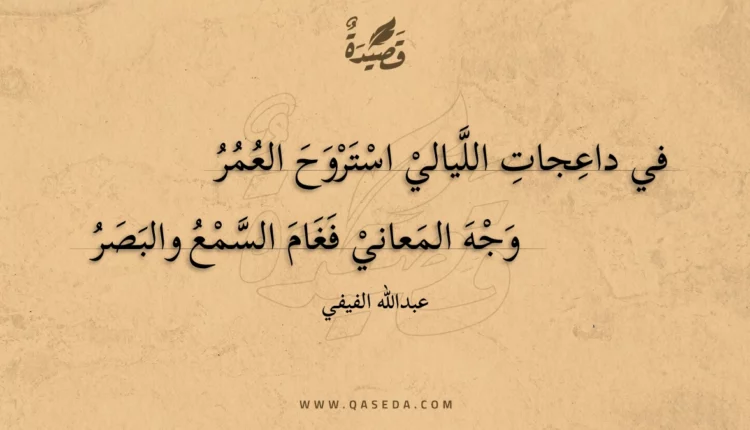 قَصِيدَةٌ
في داعِجاتِ اللَّياليْ اسْتَرْوَحَ العُمُرُ
وَجْهَ المَعانيْ فَغَامَ السَّمْعُ والبَصَرُ
عبدالله الفيفي
WWW.QASEDA.COM